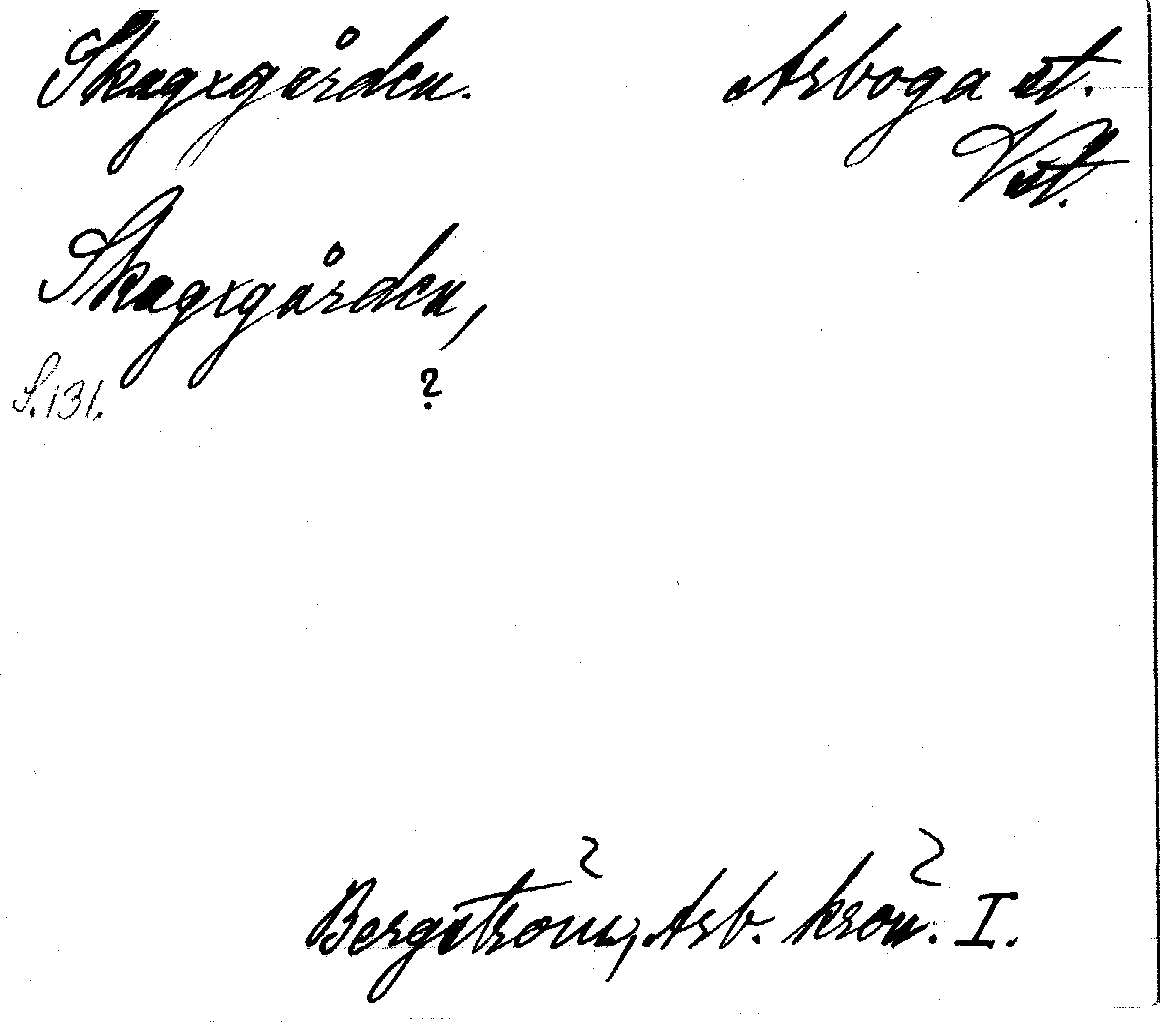 Skagxgården. Arboga st.
Vst.
Skagxgården,
S. 131. ?
Bergström, Arb. krön. I.